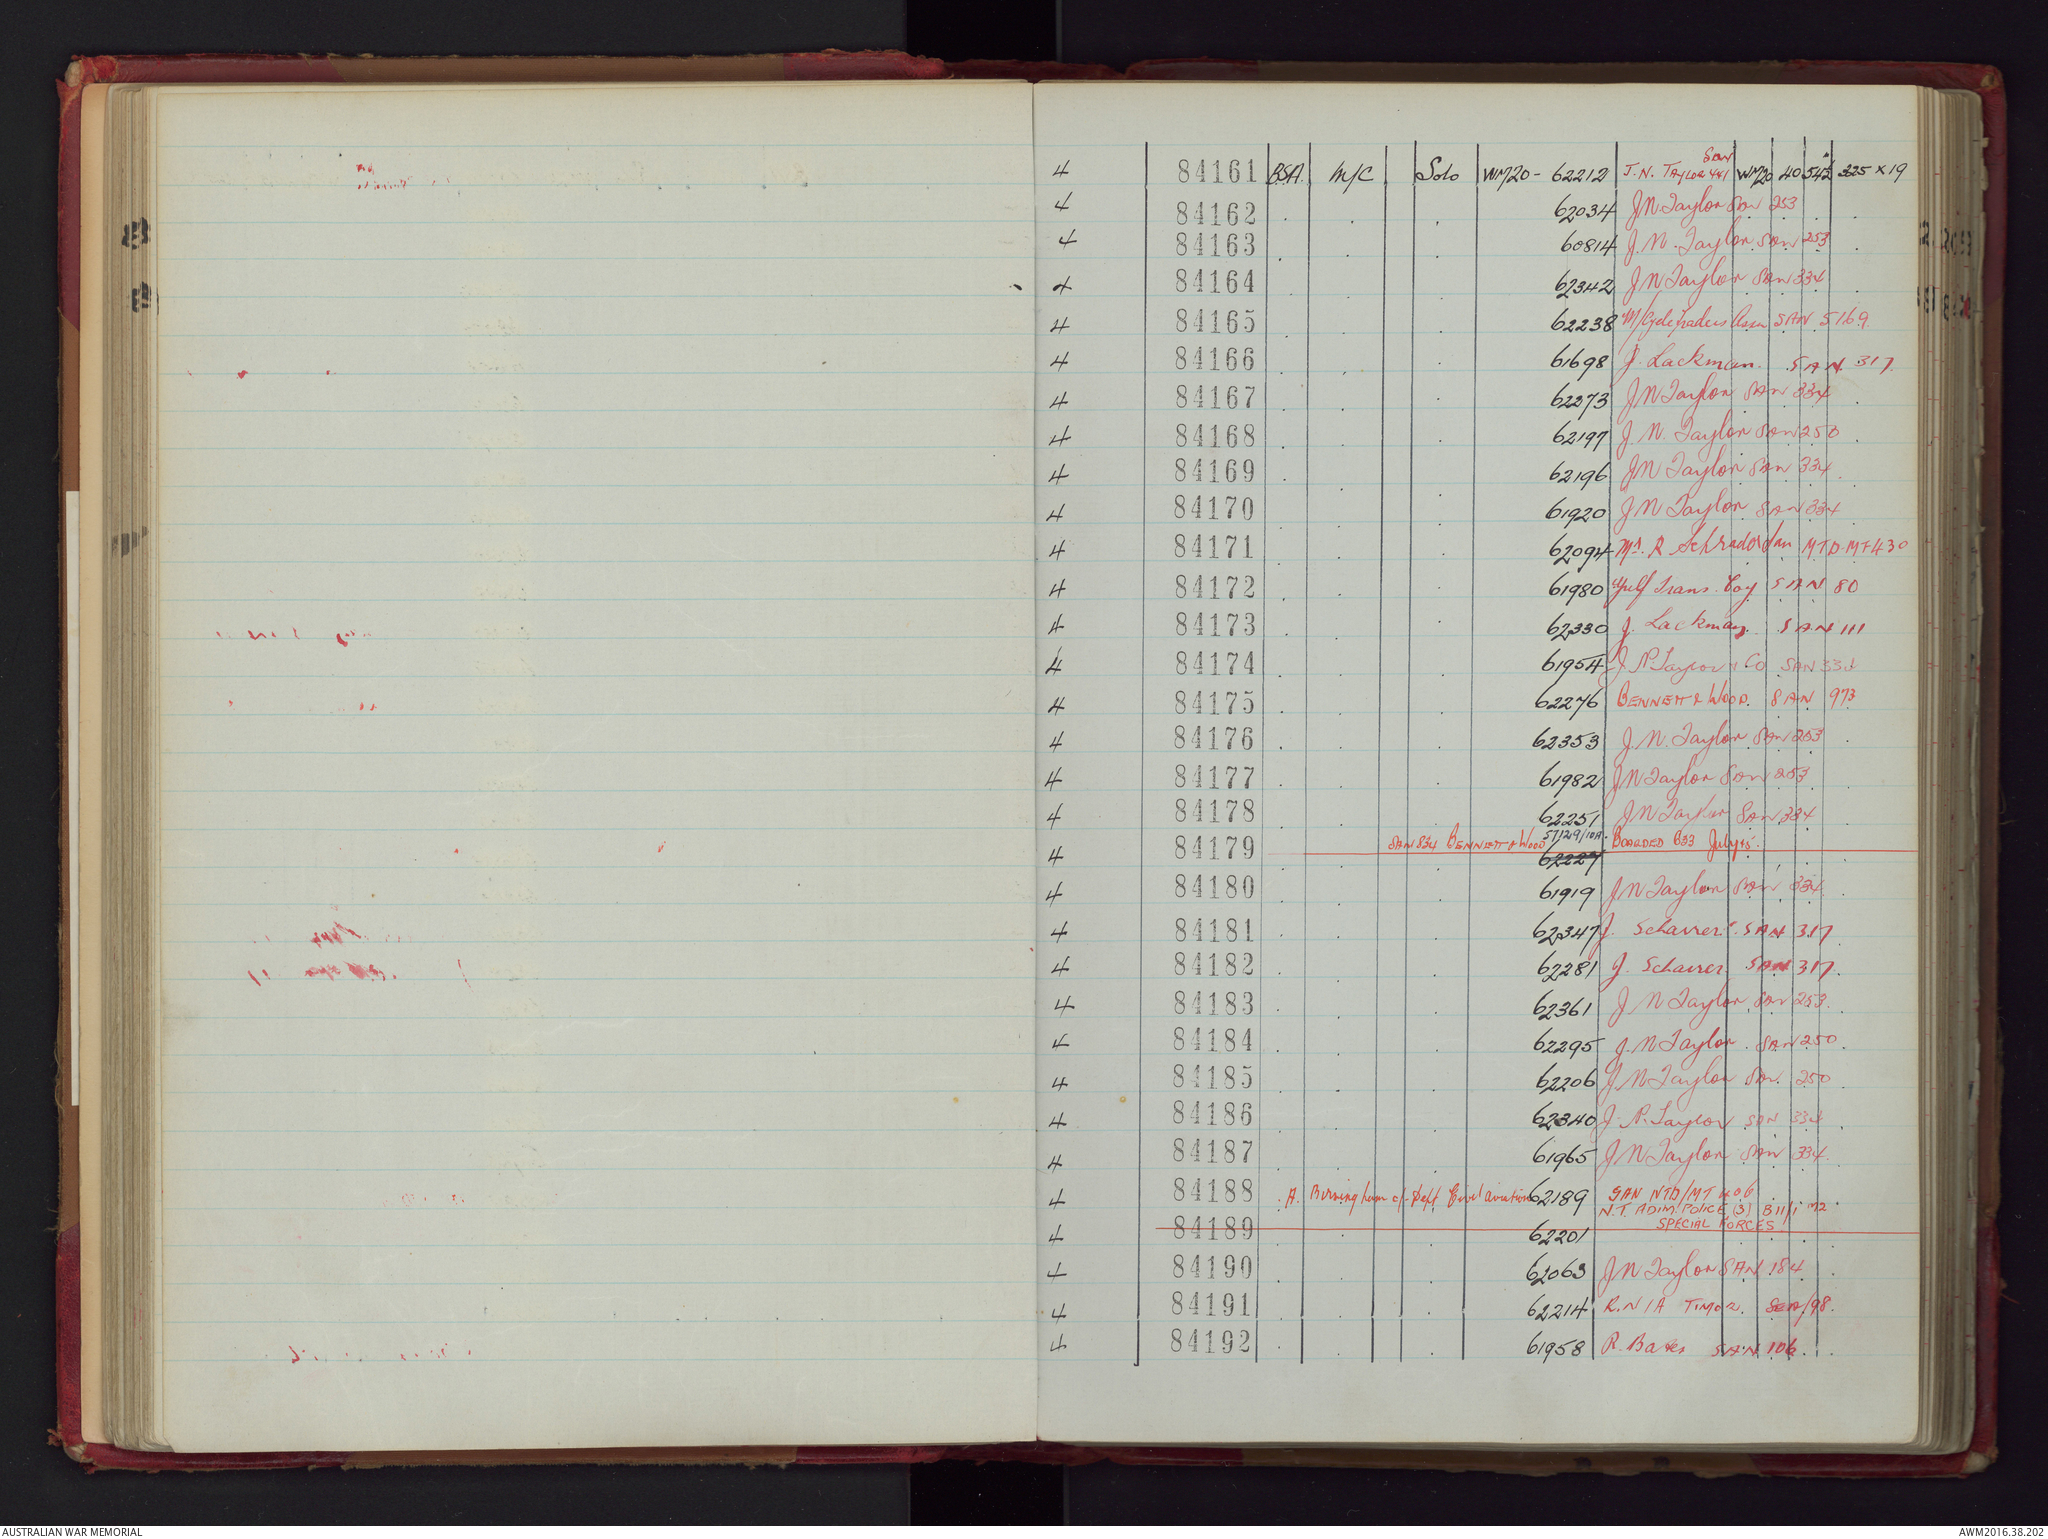 4 84161 BSA M/C Solo WM20 - 62212 J. N. TAYLOR SAN 441 WM20 40 54½" 325 x 19
4 84162 . . . 62034 J N Taylor SAN 253
4 84163 . . . 60814 J. N. Taylor SAN 253
4 84164 . . . 62342 J N Taylor SAN 334
4 84165 . . . 62238 M/Cycle Traders Assn SAN 5169
4 84166 . . . 61698 J. Lackman. SAN 317
4 84167 . . . 62273 J N Taylor SAN 334
4 84168 . . . 62197 J. N. Taylor SAN 250
4 84169 . . . 62196 J N Taylor SAN 334
4 84170 . . . 61920 J N Taylor SAN 334
4 84171 . . . 62094 Mr. R MTD-MT430
4 84172 . . . 61980 Gulf Trans. Coy SAN 80
4 84173 . . . 62330 J. Lackman. SAN 111
4 84174 . . . 61954 J. N. Taylor & Co SAN 334
4 84175 . . . 62276 BENNETT & WOOD. SAN 973
4 84176 . . . 62353 J. N. Taylor SAN 253
4 84177 . . . 61982 J N Taylor SAN 253
4 84178 . . . 62251 J N Taylor SAN 334
4 84179 SAN 834 BENNETT & WOOD 62227 BOARDED B33 July 45.
4 84180 . . . 61919 J N Taylor SAN 334
4 84181 . . . 62347 J. Scharrer SAN 317
4 84182 . . . 62281 J. Scharrer SAN 317
4 84183 . . . 62361 J N Taylor SAN 253
4 84184 . . . 62295 J. N Taylor. SAN 250
4 84185 . . . 62206 J. N Taylor SAN. 250
4 84186 . . . 62340 J. N. Taylor SAN 334
4 84187 . . . 61965 J N Taylor SAN 334
4 84188 A. Birmingham c/- Dept Civil Aviation 62189 SAN NTD/MT 406
N.T. ADIM. POLICE (3) B11/1 M2
SPECIAL FORCES
4 84189 . . . 62201
4 84190 . . . 62063 J N Taylor SAN 184
4 84191 . . . 62214 R. N I A TIMOR. SEA/98.
4 84192 . . . 61958 R. Bates SAN 106
AUSTRALIAN WAR MEMORIAL
AWM2016.38.202